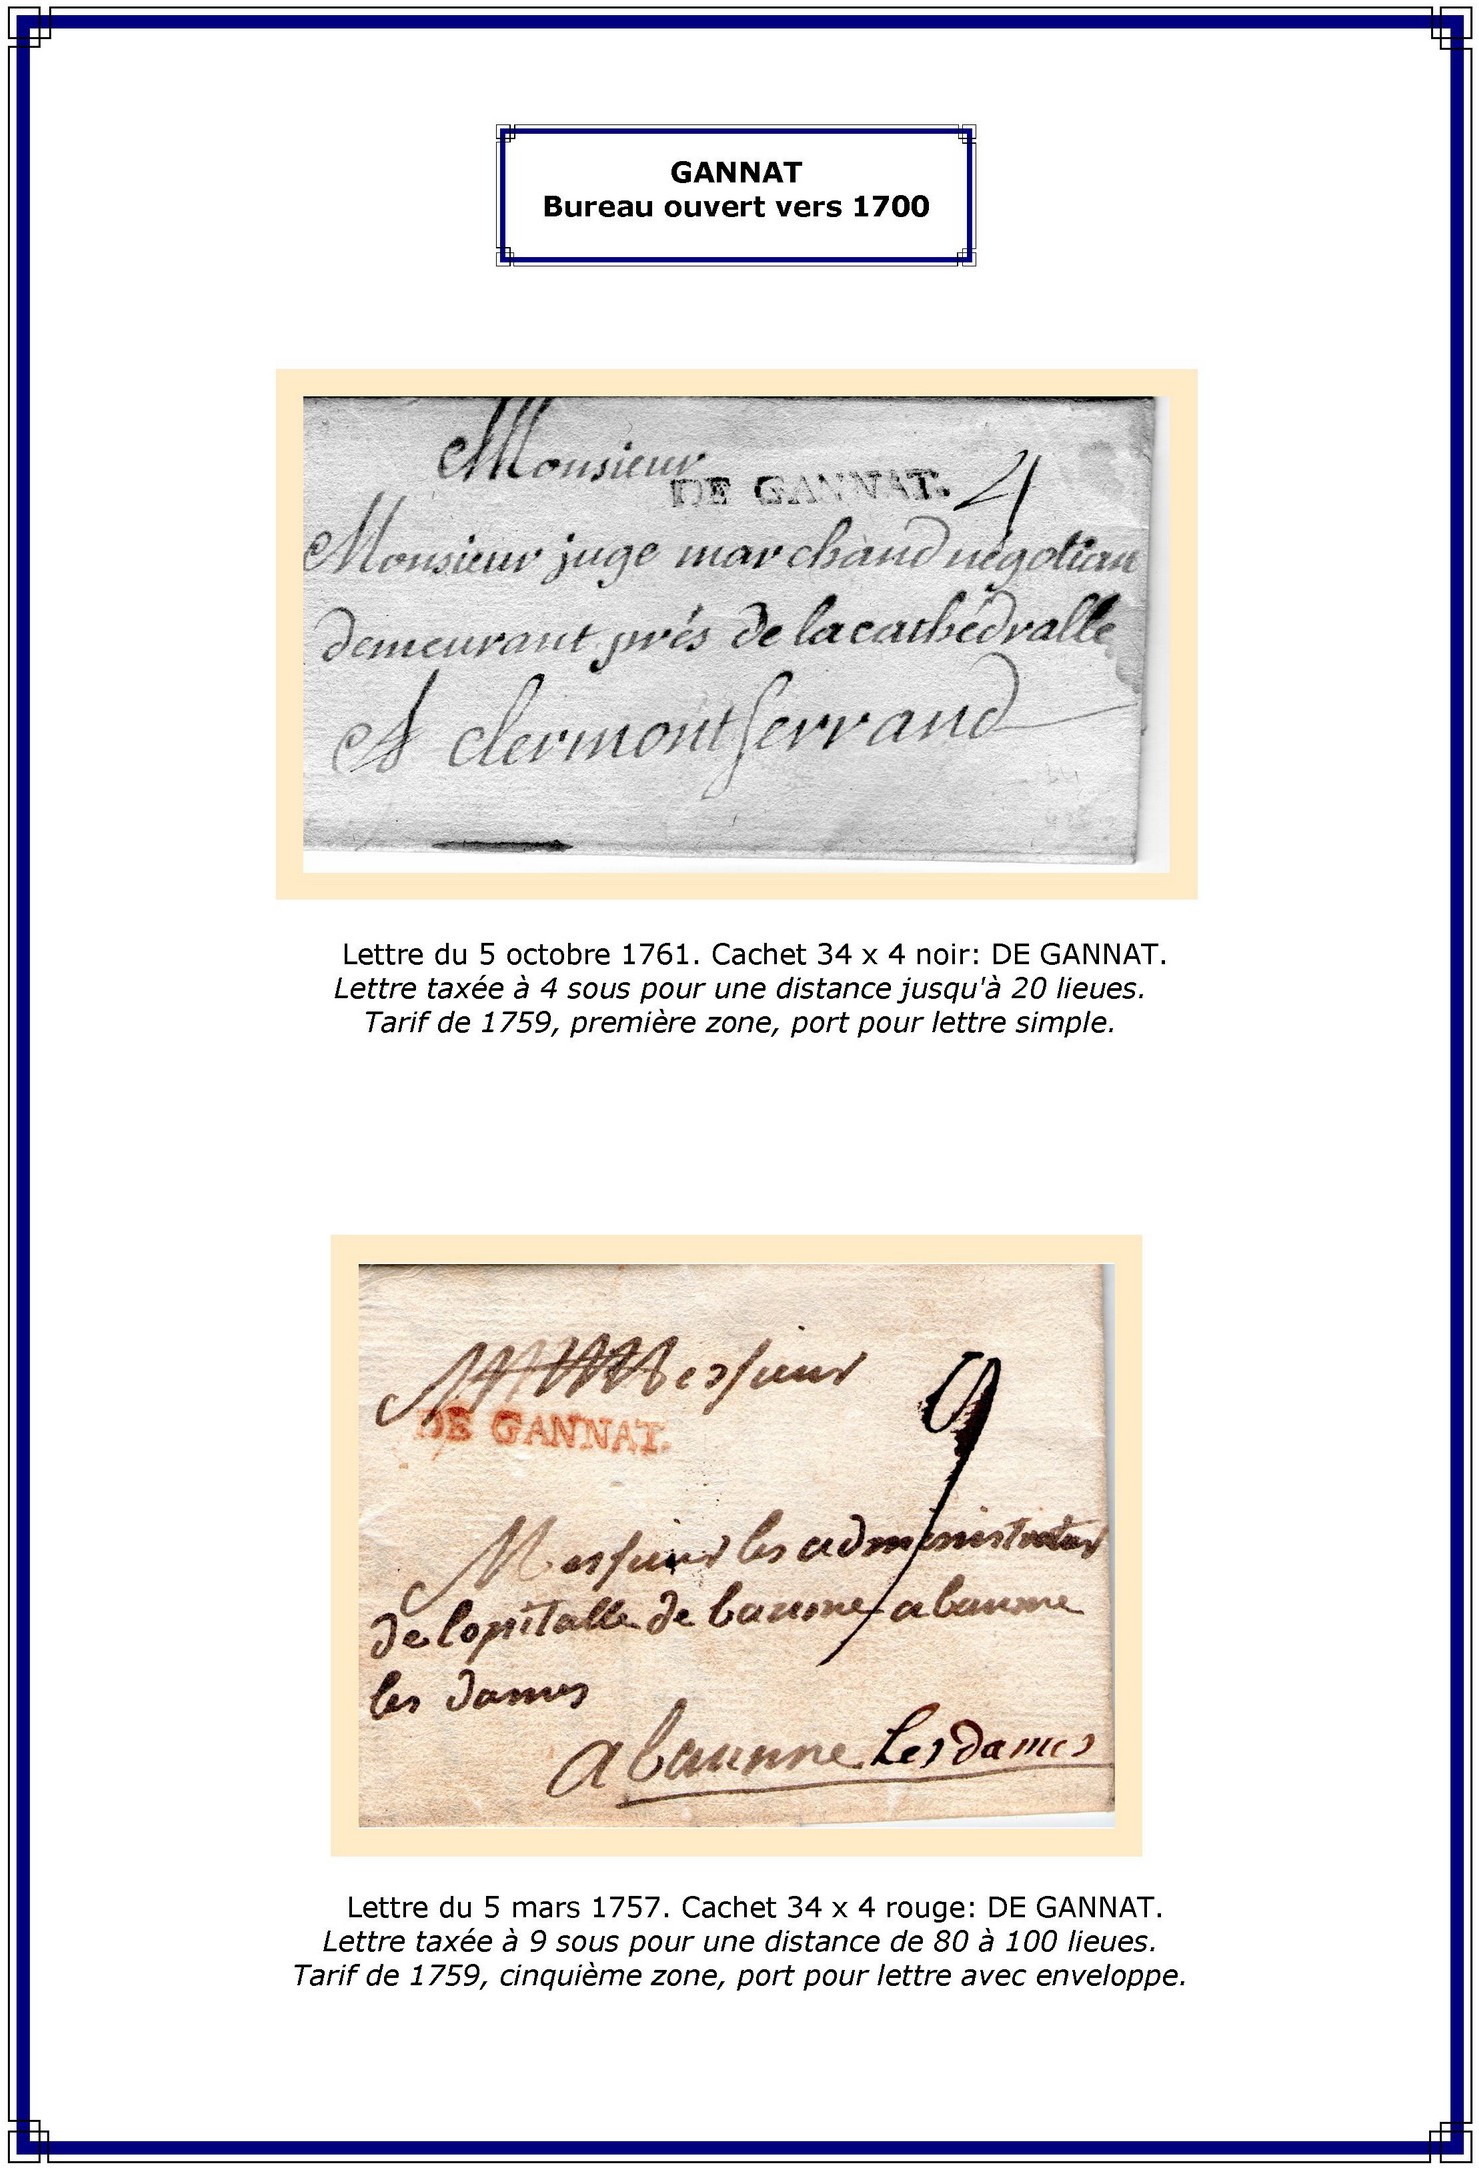 GANNAT
Bureau ouvert vers 1700
Monsieur
DE GANNAT.
4
Monsieur juge marchand négotian
demeurant prés de lacathédralle
A clermontferrand
Lettre du 5 octobre 1761. Cachet 34 x 4 noir: DE GANNAT.
Lettre taxée à 4 sous pour une distance jusqu'à 20 lieues.
Tarif de 1759, première zone, port pour lettre simple.
Messieurs
9
DE GANNAT.
Messieurs les administrateur
de lopitalle de baume a baume
les dames
a baumne Les dames
Lettre du 5 mars 1757. Cachet 34 x 4 rouge: DE GANNAT.
Lettre taxée à 9 sous pour une distance de 80 à 100 lieues.
Tarif de 1759, cinquième zone, port pour lettre avec enveloppe.